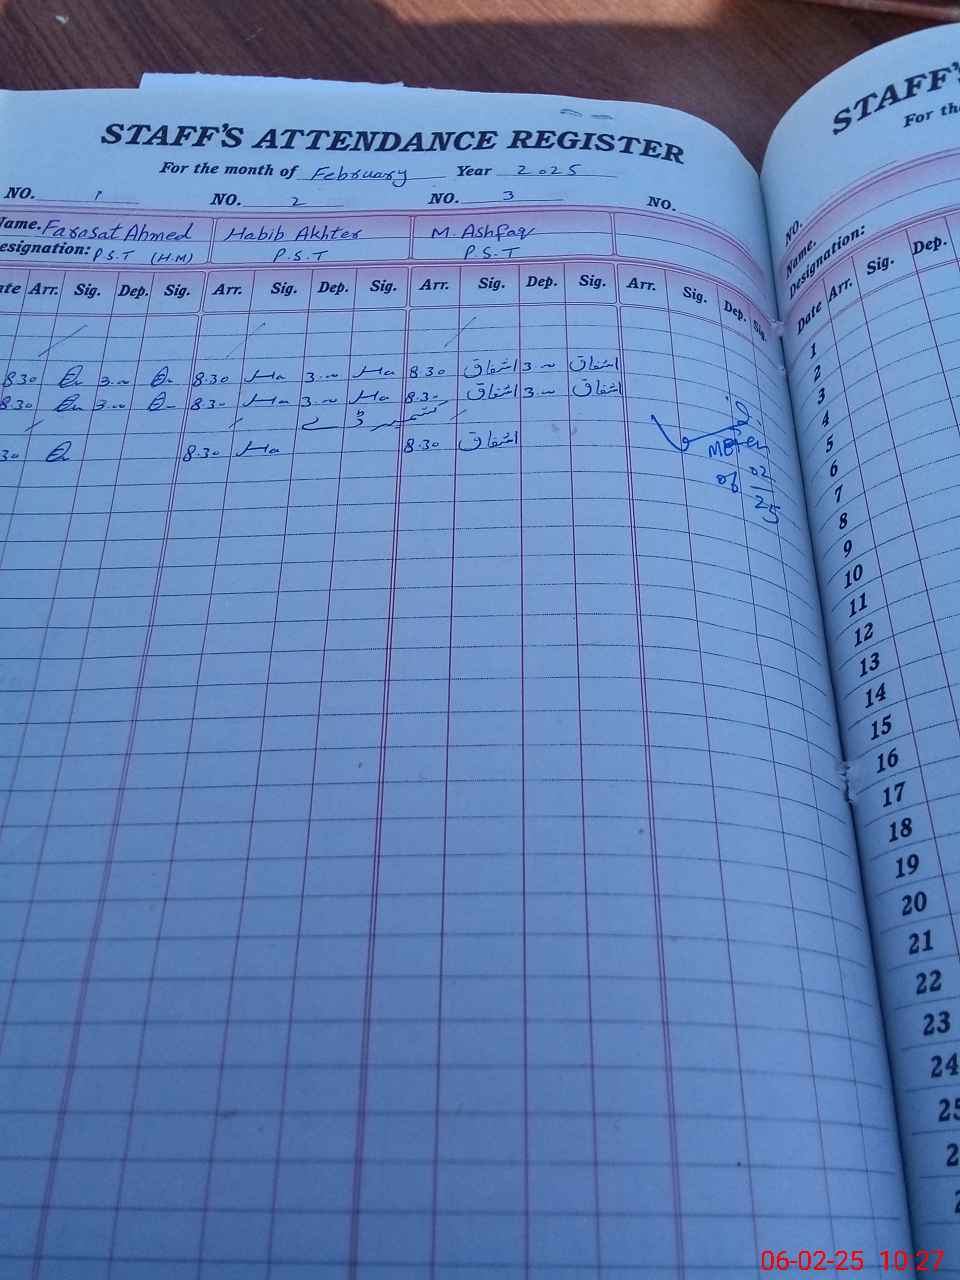 STAFF'S ATTENDANCE REGISTER
For the month of February Year 2025
NO. 1 NO. 2 NO. 3 NO.
Name. Farasat Ahmed Habib Akhter M. Ashfaq
Designation: P.S.T (H.M) P.S.T P.S.T
Date Arr. Sig. Dep. Sig. Arr. Sig. Dep. Sig. Arr. Sig. Dep. Sig. Arr. Sig. Dep. Sig.
8.30 3.00 8.30 3.00 8.30 اشفاق 3.00 اشفاق
8.30 3.00 8.30 3.00 8.30 اشفاق 3.00 اشفاق
کشمیر ڈے
30 8.30 8.30 اشفاق
06
02
25
STAFF'S
For the
NO.
Name.
Designation:
Date Arr. Sig. Dep.
1
2
3
4
5
6
7
8
9
10
11
12
13
14
15
16
17
18
19
20
21
22
23
24
25
2
2
06-02-25 10:27